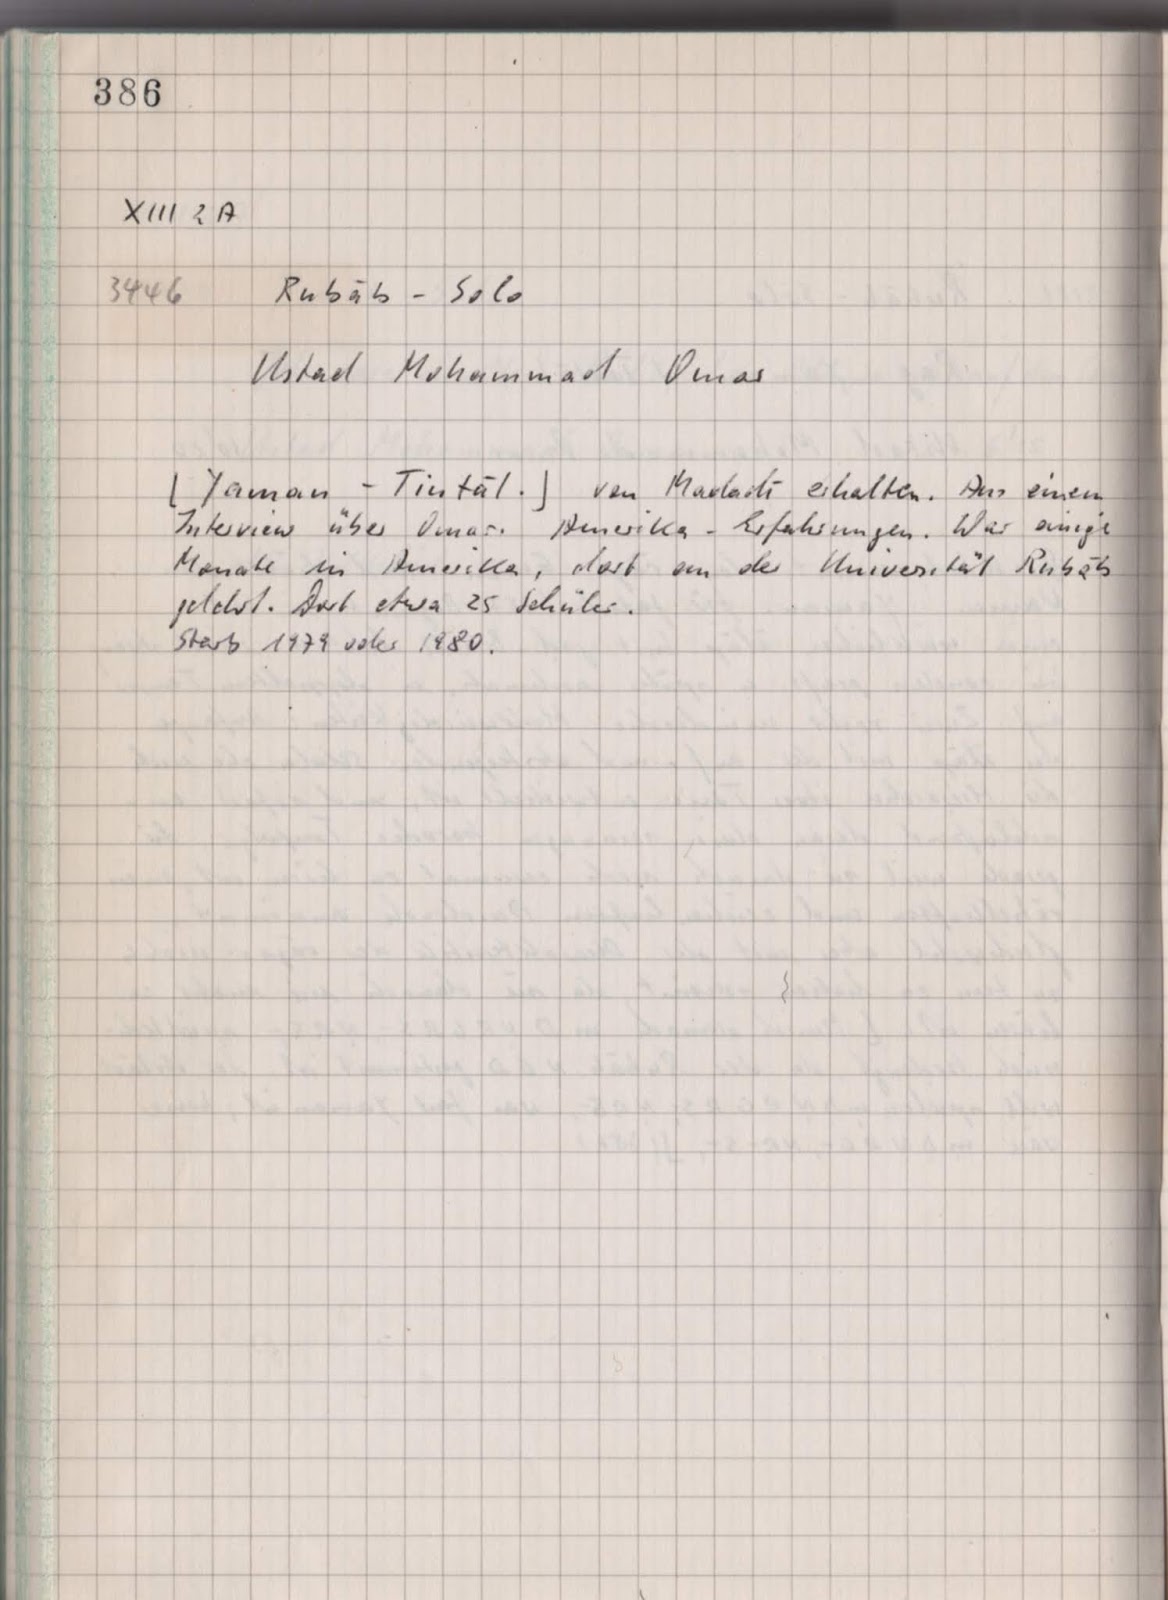 386
XIII 2 A
3446 Rubāb - Solo
Ustad Mohammad Omar
[Yaman - Tintāl.] von Madadi erhalten. Aus einem
Interview über Omar. Amerika - Erfahrungen. War einige
Monate in Amerika, dort an der Universität Rubāb
gelehrt. Dort etwa 25 Schüler.
Starb 1979 oder 1980.